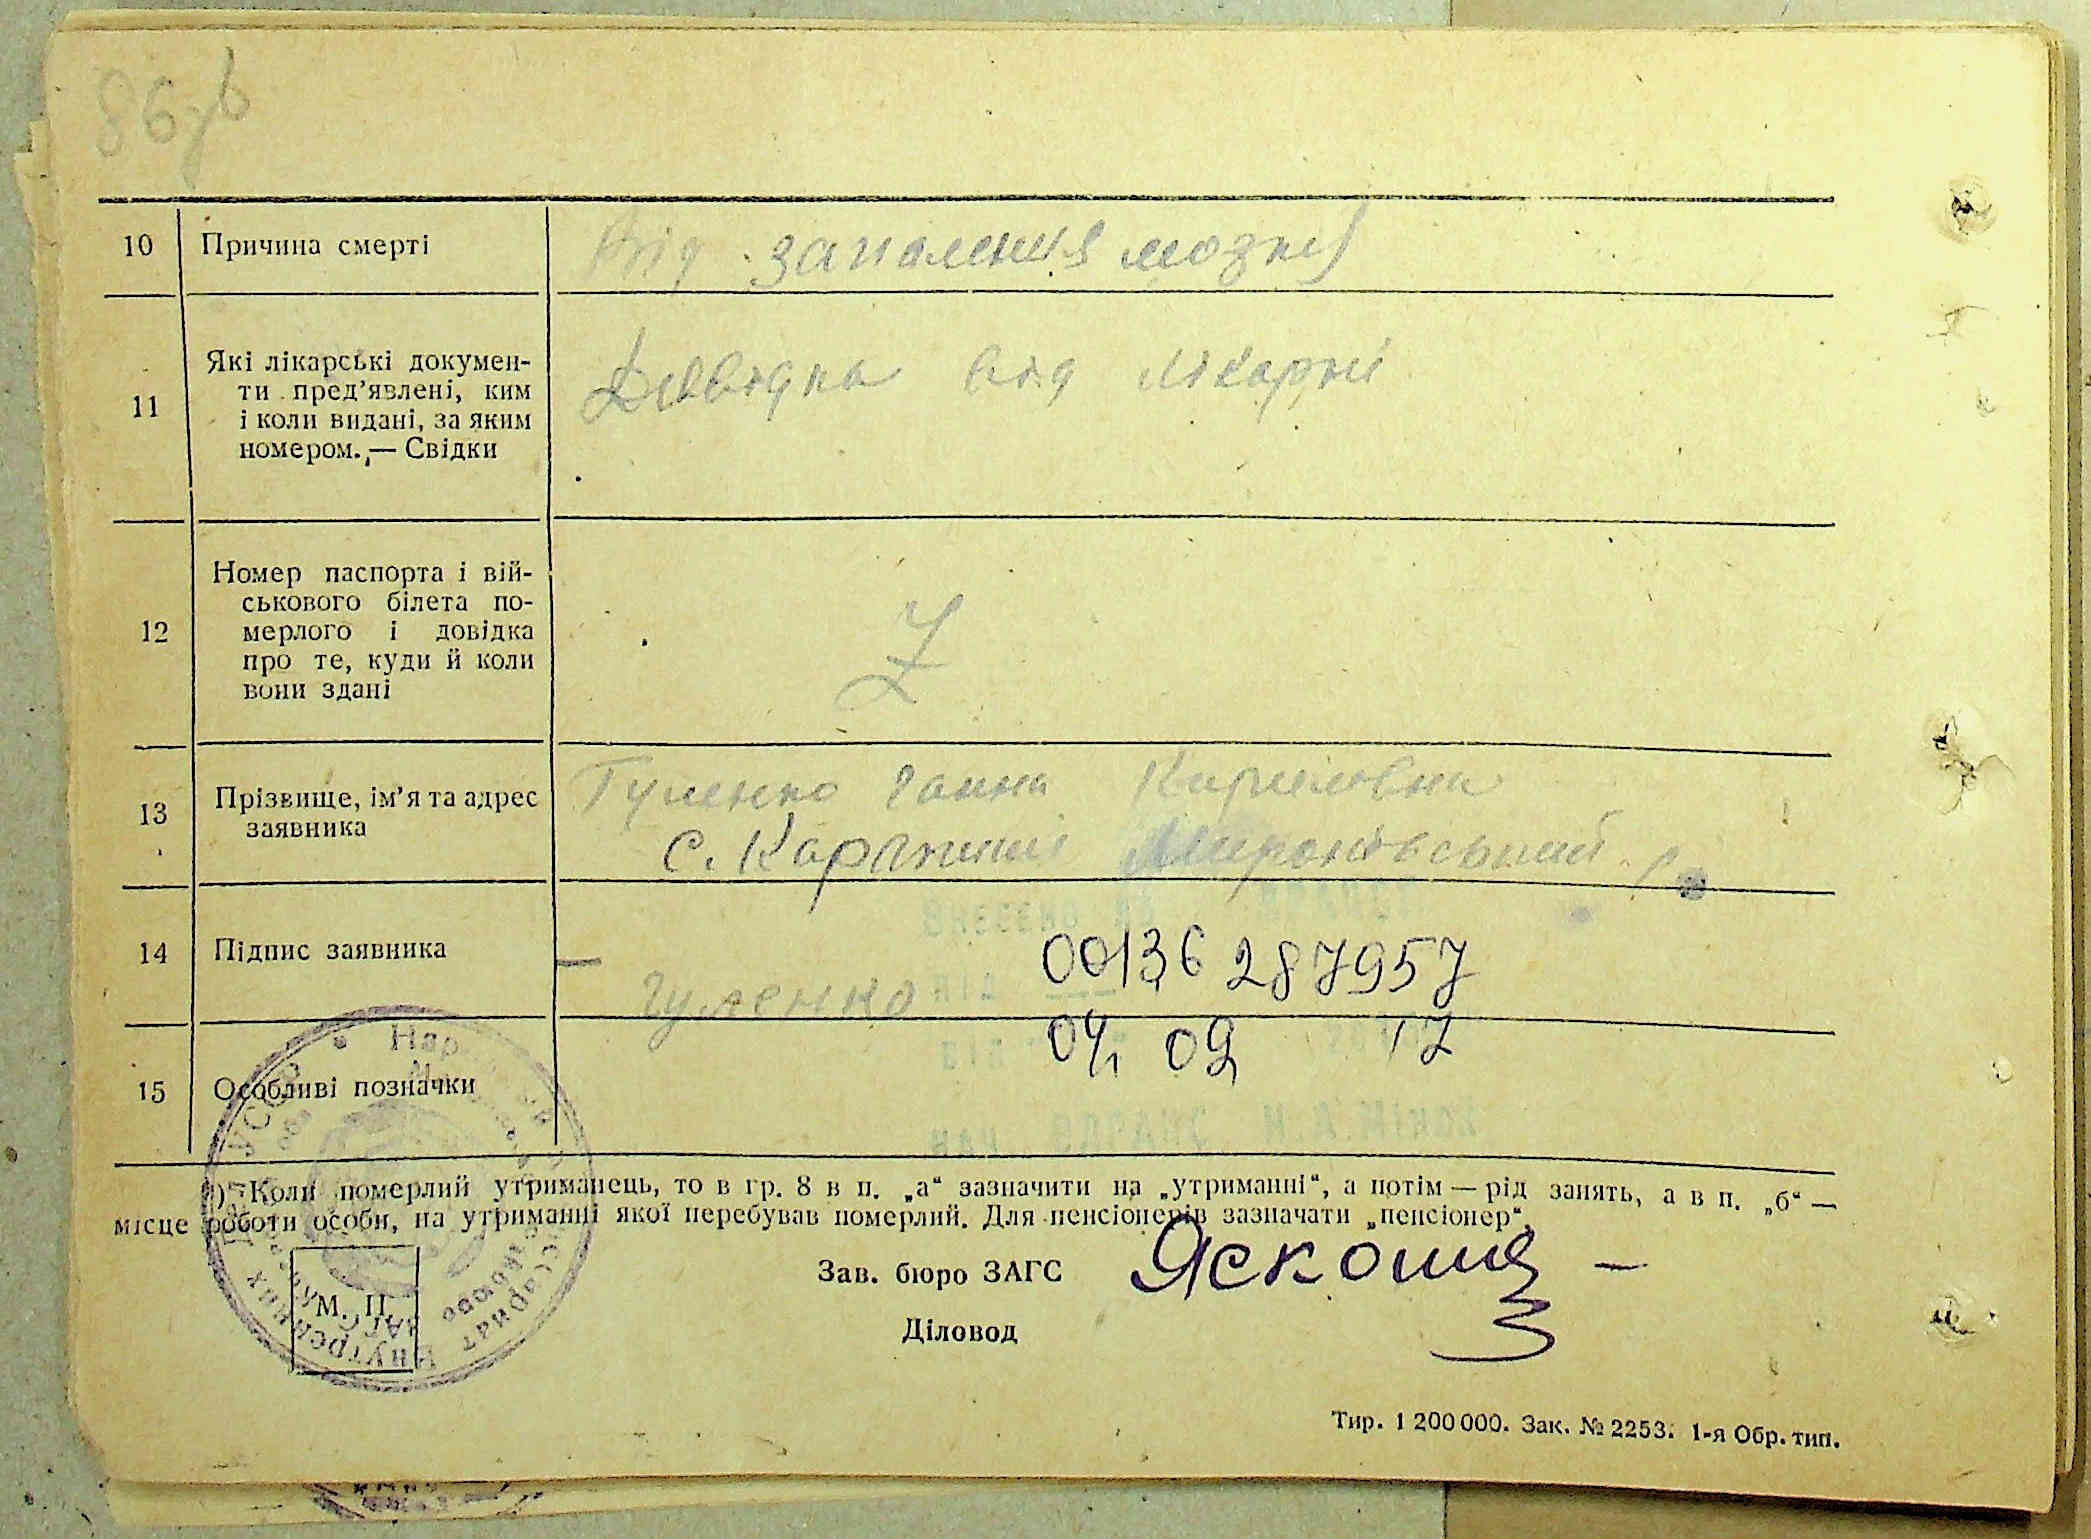 86зв
10 Причина смерті Від запалення мозку
11 Які лікарські докумен-
ти пред'явлені, ким
і коли видані, за яким
номером.— Свідки
Довідка від лікарні
12 Номер паспорта і вій-
ськового білета по-
мерлого і довідка
про те, куди й коли
вони здані
Z
13 Прізвище, ім'я та адрес
заявника
Гуленко Ганна Кирилівна
с. Карапиші Миронівський
14 Підпис заявника
00136 287957
Гуленко
04, 02 17
15 Особливі позначки
*) Коли померлий утриманець, то в гр. 8 в п. „а“ зазначити на „утриманні“, а потім — рід занять, а в п. „б“ —
місце роботи особи, на утриманні якої перебував померлий. Для пенсіонерів зазначати „пенсіонер“.
Зав. бюро ЗАГС
М. П.
Діловод
Тир. 1 200 000. Зак. № 2253. 1-я Обр. тип.